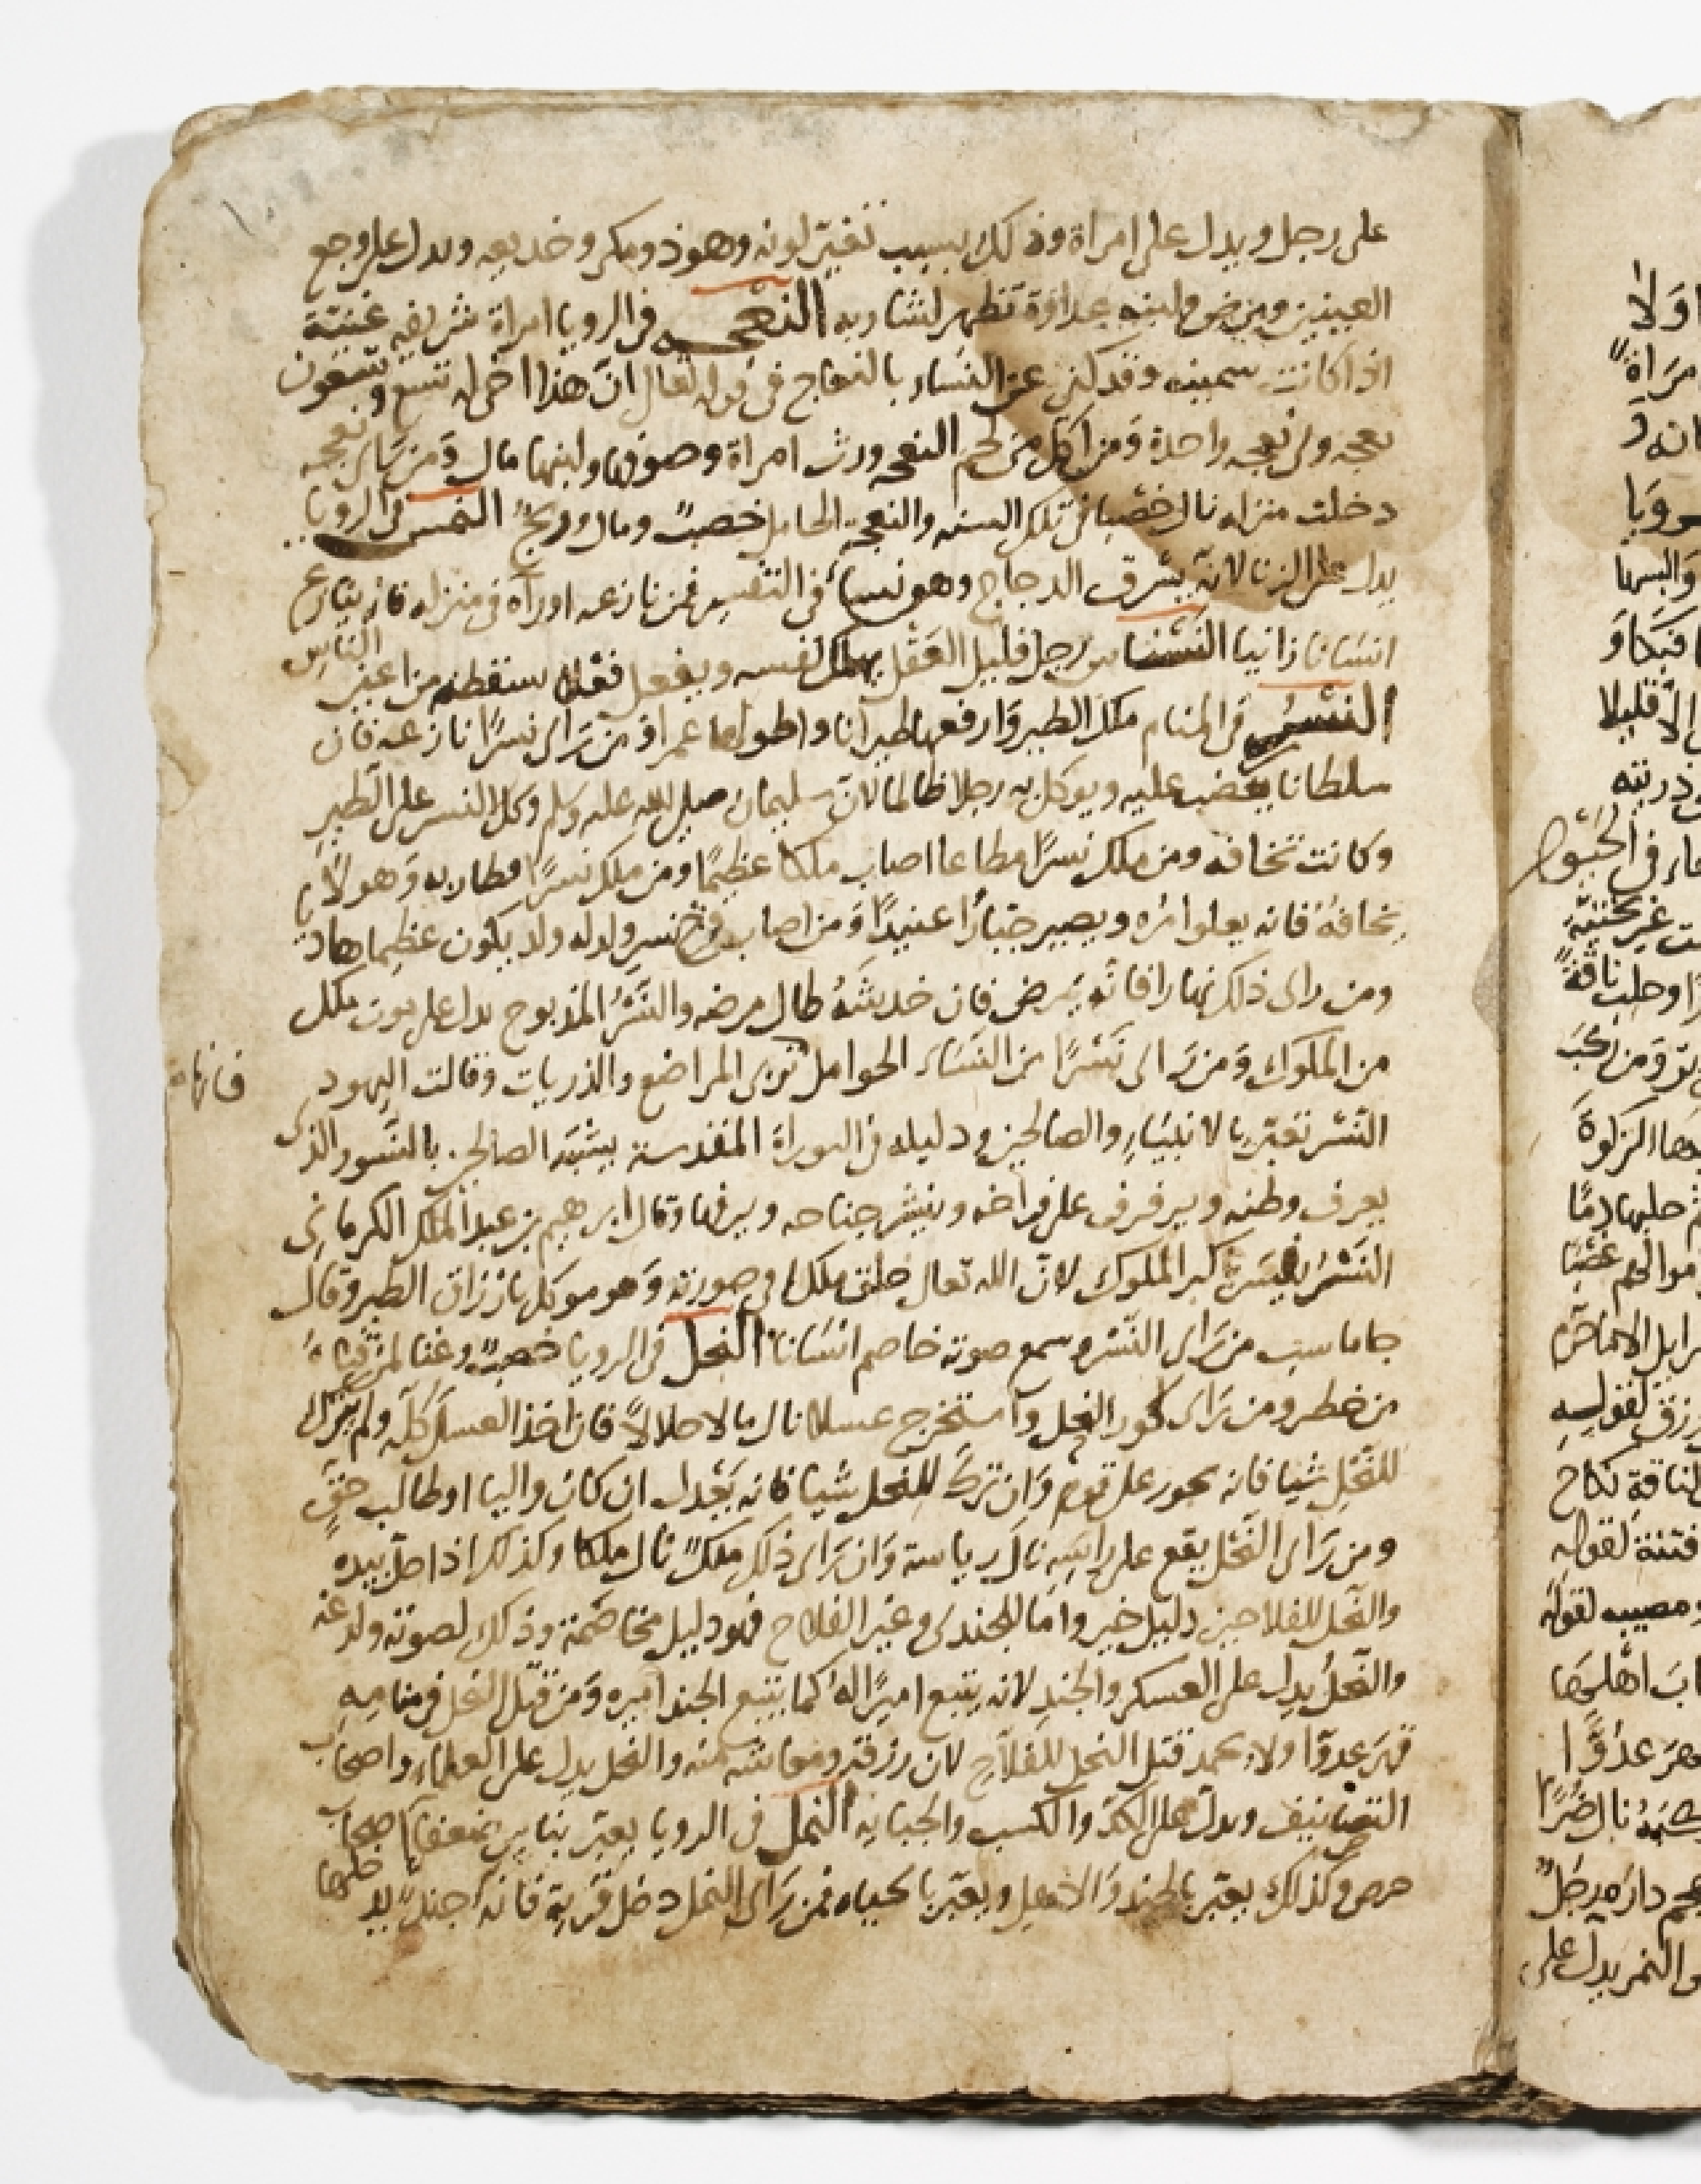 على رجل ويدل على امراة وذلك بسبب تغير لونه وهو ذو مكر وخديعه ويدل على وجع
العينين ومرض ولبنه عداوة تظهر لشاربه النعجه في الرويا امراة شريفه غنية
اذا كانت سمينه وقد كنى عن النساء بالنعاج في قوله تعالى ان هذا اخي له تسع وتسعون
نعجه ولي نعجه واحدة ومن اكل من لحم النعجه ورث امراة وصوفها ولبنها مال ومن راى نعجه
دخلت منزله نال خصبا في تلك السنه والنعجة الحامل خصب ومال ورج النمس في الرويا
يدل على الزنا لانه يسرق الدجاج وهو نسا في التفسير فمن نازعه او رآه في منزله فانه ينازع
انسانا زانيا النسناس رجل قليل العقل يهلك نفسه ويفعل فعلا يسقطه من اعين الناس
النسر في المنام ملك الطير وارفعها طيرانا واطولها عمرا ومن راى نسرا نازعه فان
سلطانا يغضب عليه ويوكل به رجلا ظالما لان سليمان صلى الله عليه وسلم وكل النسر على الطير
وكانت تخافه ومن ملك نسرا مطاعا اصاب ملكا عظيما ومن ملك نسرا فطار به وهو لا
يخافه فانه يعلوا امره ويصير جبارا عنيدا ومن اصاب فرخ نسر ولد له ولد يكون عظيما هاديا
ومن راى ذلك نهارا فانه يمرض فان خدشه طال مرضه والنسر المذبوح يدل على موت ملك
من الملوك ومن راى نسرا من النساء الحوامل ترى المراضع والذريات وقالت اليهود
فانها
النسر تعبر بالانبياء والصالحين ودليله في التوراة المقدسة يشبه الصالحين بالنسور الذي
يعرف وطنه ويرفرف على فراخه وينشر جناحه ويرقها وقال ابرهيم بن عبد الملك الكرماني
النسر يفسر باكبر الملوك لان الله تعالى خلق ملكا في صورته وهو موكل بارزاق الطير وقال
جاماسب من راى النسر وسمع صوته خاصم انسانا النحل في الرويا خصب وغنا لمن قناه
من خطر ومن راى كور النحل واستخرج عسلا نال مالا حلالا فان اخذ العسل كله ولم يترك
للنحل شيا فانه يجور على قوم وان ترك للنحل شيا فانه يعدل ان كان واليا او طالب حق
ومن راى النحل يقع على راسه نال رياسة وان راى ذلك ملك نال ملكا وكذلك اذا حل بيده
والنحل للفلاحين دليل خير واما للجندي وغير الفلاح فهو دليل مخاصمة وذلك لصوته ولدغه
والنحل يدل على العسكر والجند لانه يتبع اميرا له كما يتبع الجند اميره ومن قتل النحل في منامه
قهر عدوا ولا يحمد قتل النحل للفلاح لان رزقه ومعاشه منه والنحل يدل على العلماء واصحاب
التصانيف ويدل على الكد والكسب والجبايه النمل في الرويا يعبر بناس ضعفا اصحاب
حرص وكذلك يعبر بالجند والاهل ويعبر بالحياه فمن راى النمل دخل قرية فانه جند يدخلها